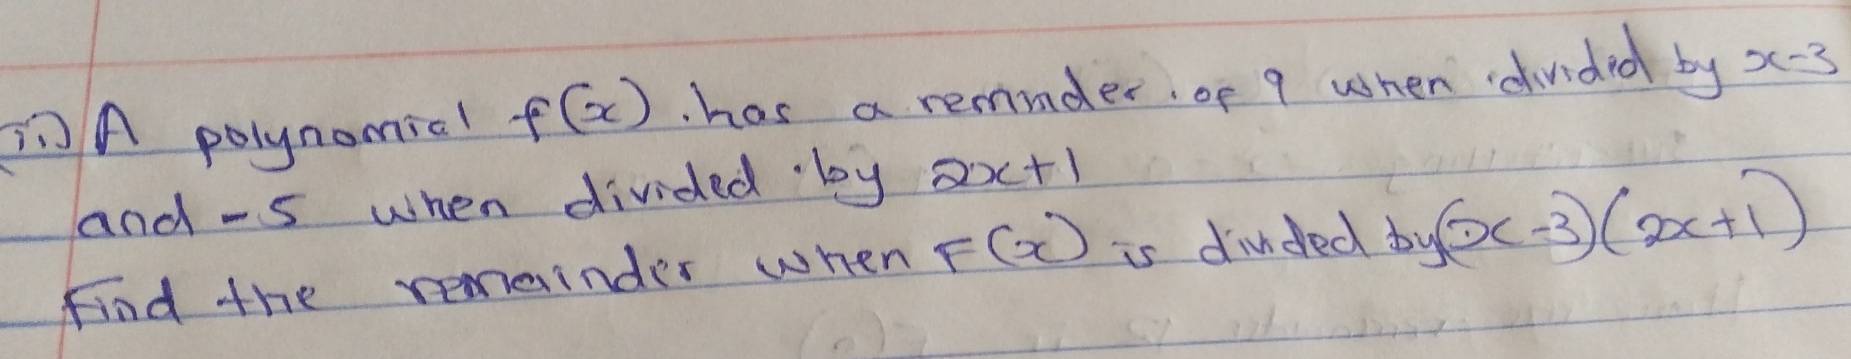 ii) A polynomial f(x). has a reminder. of 9 when divided by x-3
and -5 when divided by 2x+1
Find the remainder when F(x) is divided by (x-3)(2x+1)